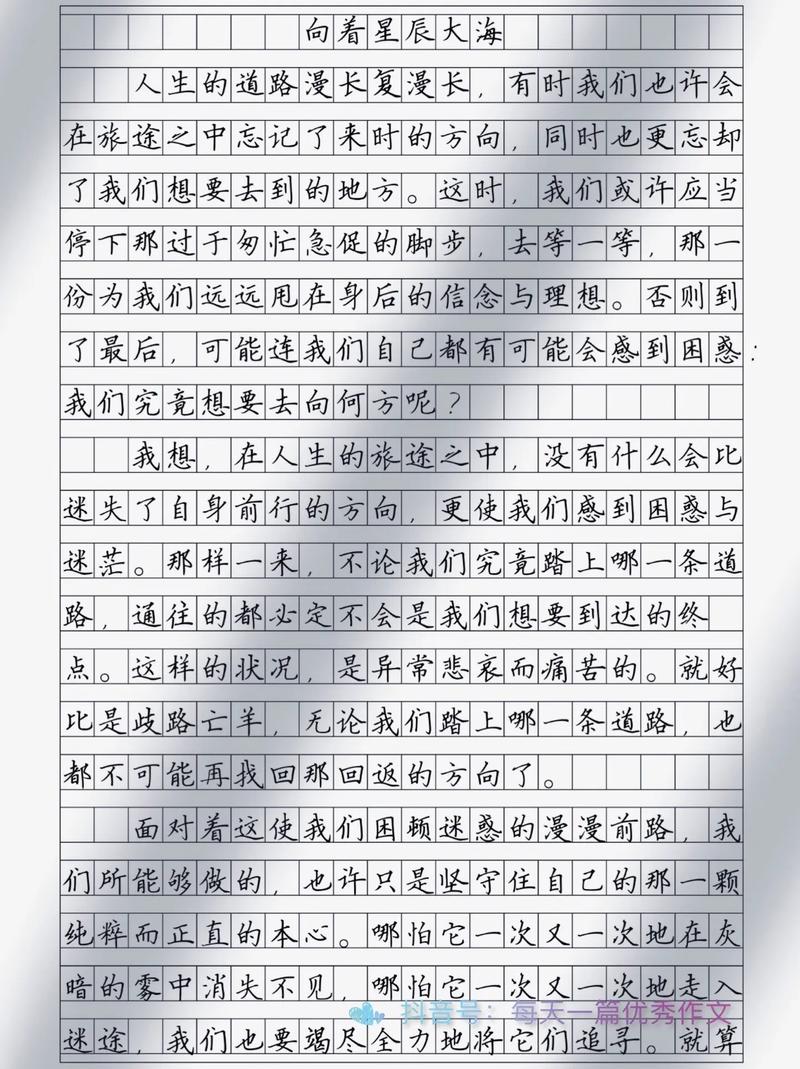 向着星辰大海
人生的道路漫长复漫长，有时我们也许会
在旅途之中忘记了来时的方向，同时也更忘却
了我们想要去到的地方。这时，我们或许应当
停下那过于匆忙急促的脚步，去等一等，那一
份为我们远远甩在身后的信念与理想。否则到
了最后，可能连我们自己都有可能会感到困惑：
我们究竟想要去向何方呢？
我想，在人生的旅途之中，没有什么会比
迷失了自身前行的方向，更使我们感到困惑与
迷茫。那样一来，不论我们究竟踏上哪一条道
路，通往的都必定不会是我们想要到达的终
点。这样的状况，是异常悲哀而痛苦的。就好
比是歧路亡羊，无论我们踏上哪一条道路，也
都不可能再找回那回返的方向了。
面对着这使我们困顿迷惑的漫漫前路，我
们所能够做的，也许只是坚守住自己的那一颗
纯粹而正直的本心。哪怕它一次又一次地在灰
暗的雾中消失不见，哪怕它一次又一次地走入
抖音号：每天一篇优秀作文
迷途，我们也要竭尽全力地将它们追寻。就算